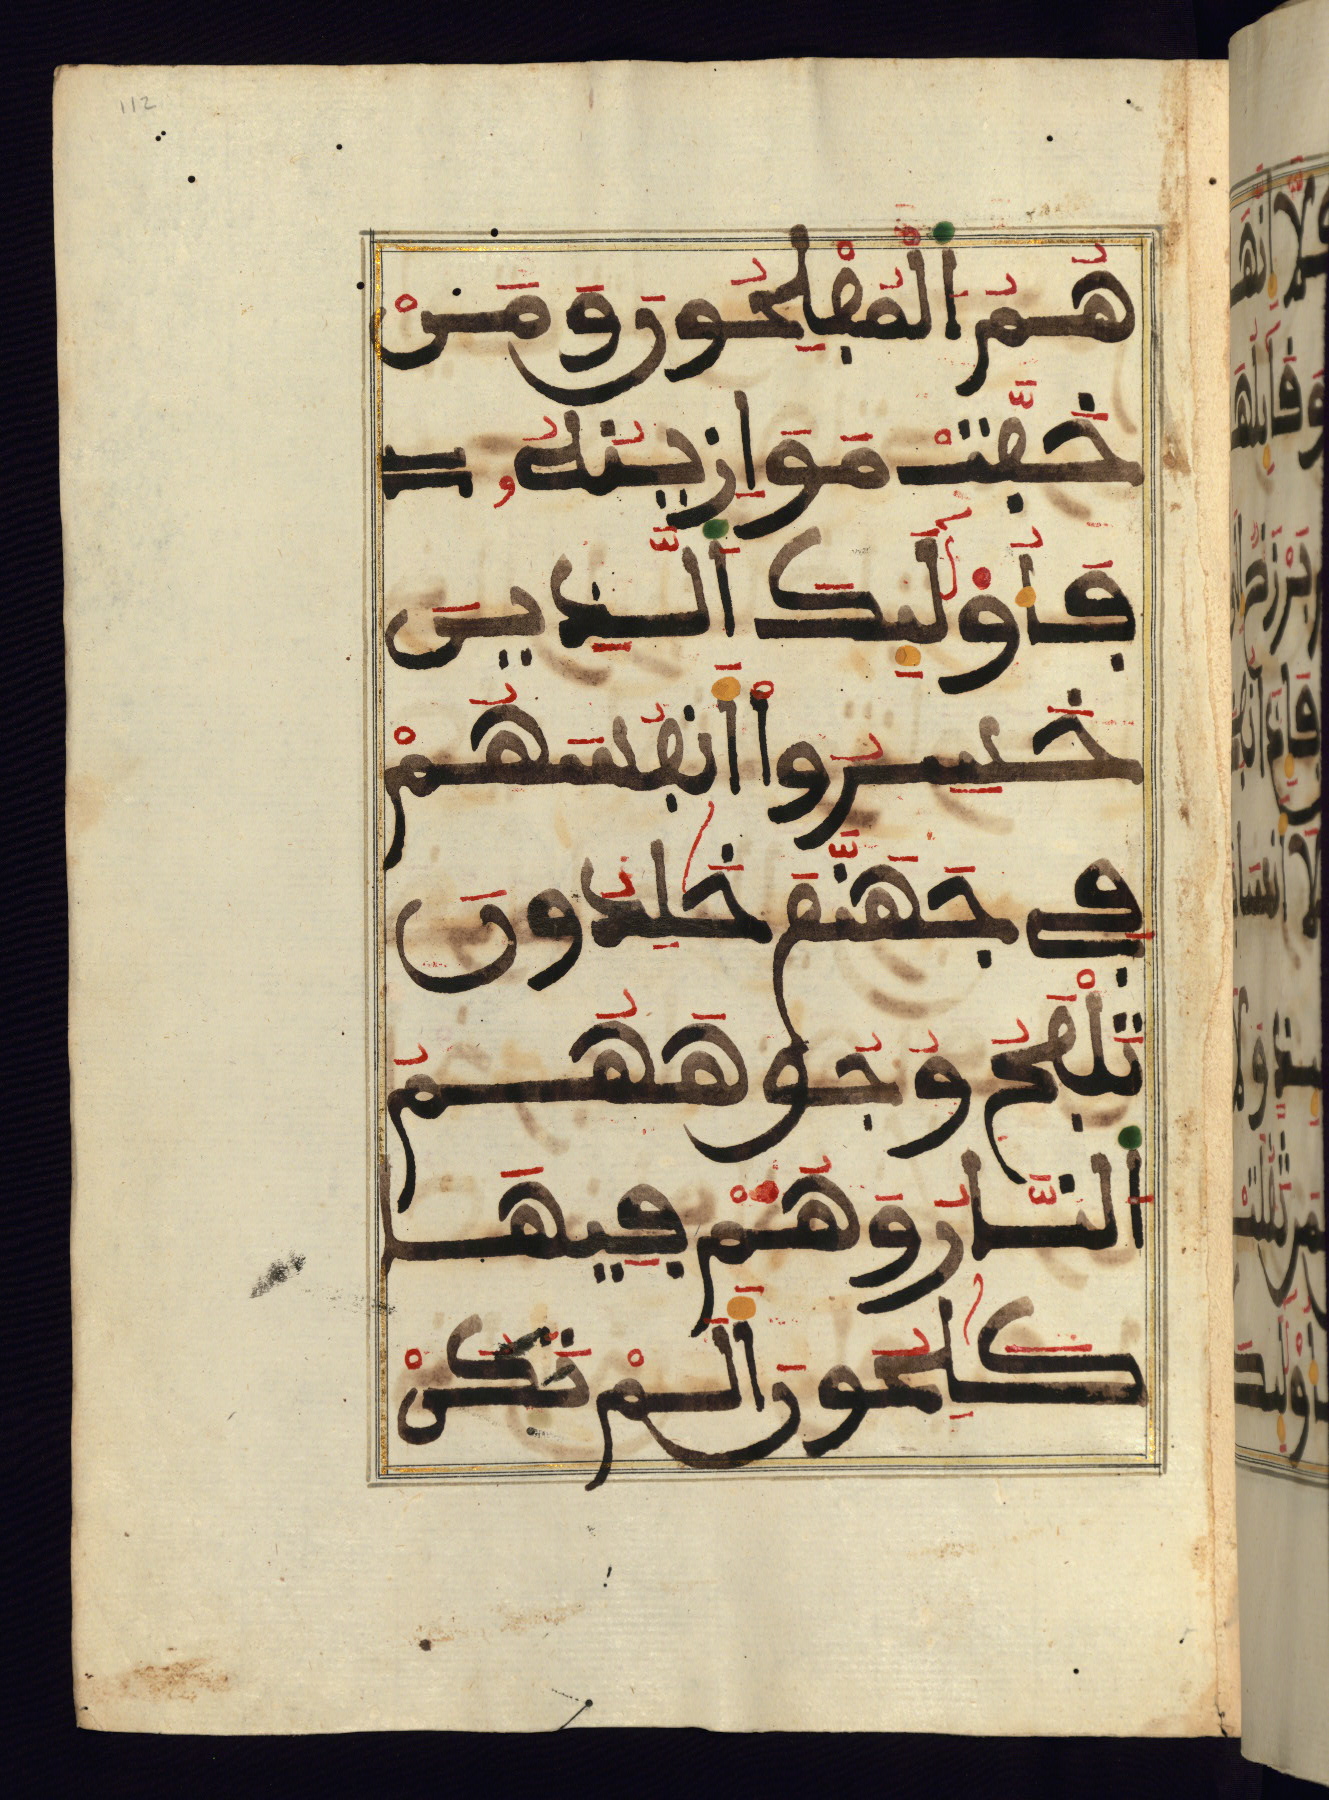 112
هُمُ الْمُفْلِحُونَ وَمَنْ
خَفَّتْ مَوَازِينُهُۥ
فَأُوْلَٰئِكَ الَّذِينَ
خَسِرُواْ أَنفُسَهُمْ
فِي جَهَنَّمَ خَٰلِدُونَ
تَلْفَحُ وُجُوهَهُمُ
النَّارُ وَهُمْ فِيهَا
كَٰلِحُونَ أَلَمْ تَكُنْ